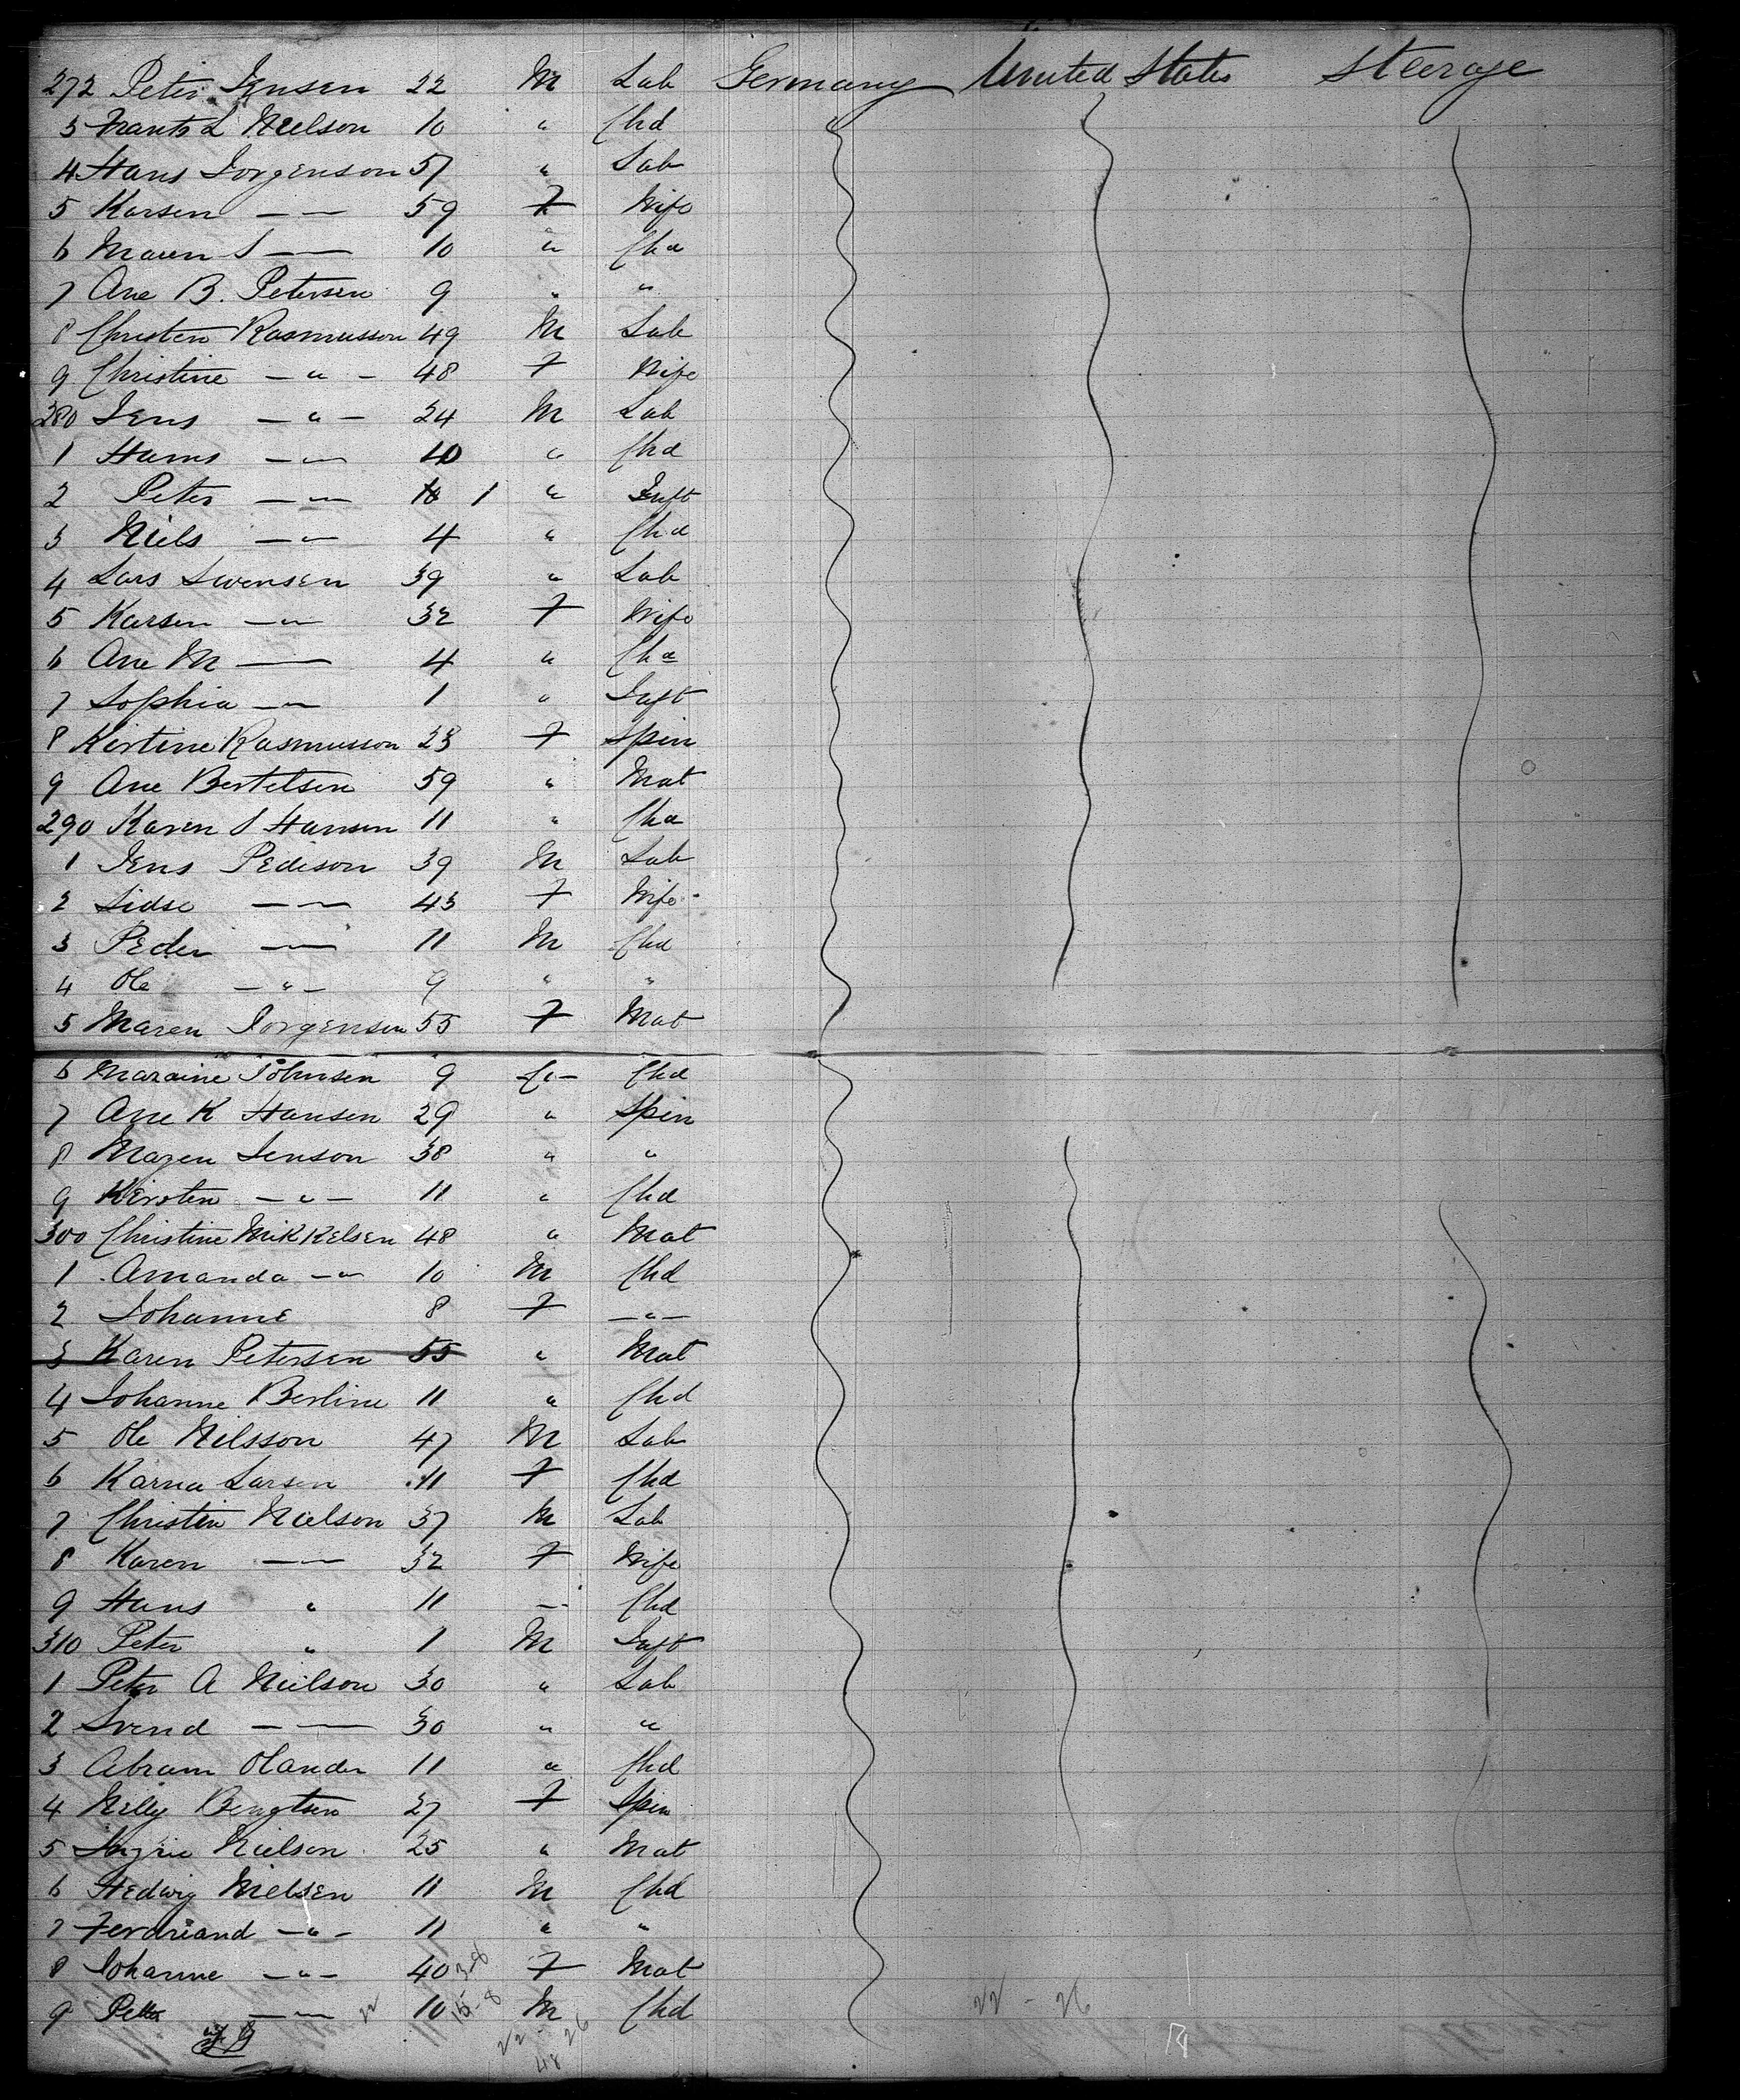 272 Peter Jensen 22 M Lab Germany United States Steerage
3 Frants L Nielson 10 " Chd
4 Hans Jorgenson 57 " Lab
5 Karsen — — 59 F Wife
6 Maren S — 10 " Chd
7 Ane B. Petersen 9 " "
8 Christen Rasmusson 49 M Lab
9 Christine — " — 48 F Wife
280 Jens — " — 24 M Lab
1 Hans — " — 10 " Chd
2 Peter — " — 1 " Inft
3 Niels — " — 4 " Chd
4 Lars Swensen 39 " Lab
5 Karsen — " — 32 F Wife
6 Ane M — 4 " Chd
7 Sophia — " — 1 " Inft
8 Kirstine Rasmusson 23 F Spin
9 Ane Bertelsen 59 " Mat
290 Karen S Hansen 11 " Chd
1 Jens Pedison 39 M Lab
2 Sidse — " — 43 F Wife
3 Peder — " — 11 M Chd
4 Ole — " — 9 " "
5 Maren Jorgensen 55 F Mat
6 Maraine Johnsen 9 — " — Chd
7 Ane K Hansen 29 " Spin
8 Maren Jenson 38 " "
9 Kirsten — " — 11 " Chd
300 Christine Mikkelsen 48 " Mat
1 Amanda — " 10 M Chd
2 Johanne 8 F — " —
3 Karen Petersen 55 " Mat
4 Johanne Berline 11 " Chd
5 Ole Nilsson 47 M Lab
6 Karna Larsen 11 F Chd
7 Christen Nielson 37 M Lab
8 Karen — " — 32 F Wife
9 Hans " 11 — Chd
310 Peter " 1 M Inft
1 Peter A Nielson 30 " Lab
2 Svend — — 30 " "
3 Abram Olander 11 " Chd
4 Nelly Bengtsen 27 F Spin
5 Ingrie Nielson 25 " Mat
6 Hedwig Nielsen 11 M Chd
7 Ferdinand — " — 11 " "
8 Johanne — " — 40 F Mat
9 Petter — " — 10 M Chd
22 - 26